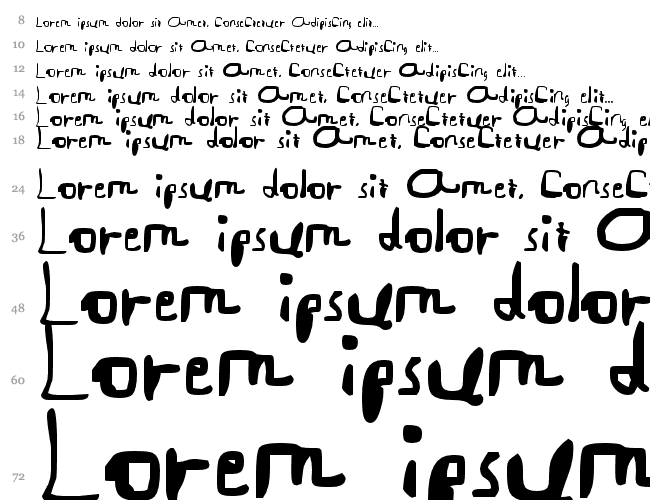 8 Lorem ipsum dolor sit Amet, ConseCtetuer AdipisCing elit...
10 Lorem ipsum dolor sit Amet, ConseCtetuer AdipisCing elit...
12 Lorem ipsum dolor sit Amet, ConseCtetuer AdipisCing elit...
14 Lorem ipsum dolor sit Amet, ConseCtetuer AdipisCing elit...
16 Lorem ipsum dolor sit Amet, ConseCtetuer AdipisCing e
18 Lorem ipsum dolor sit Amet, ConseCtetuer Adip
24 Lorem ipsum dolor sit Amet, ConseC
36 Lorem ipsum dolor sit A
48 Lorem ipsum dolor
60 Lorem ipsum d
72 Lorem ipsum